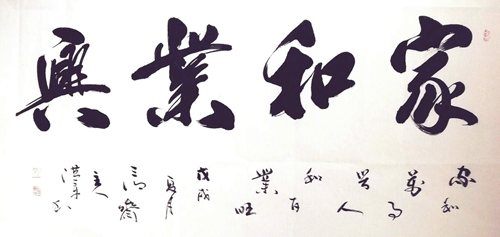 家和業興
家和
萬事
興人
和百
業旺
戊戌
夏月